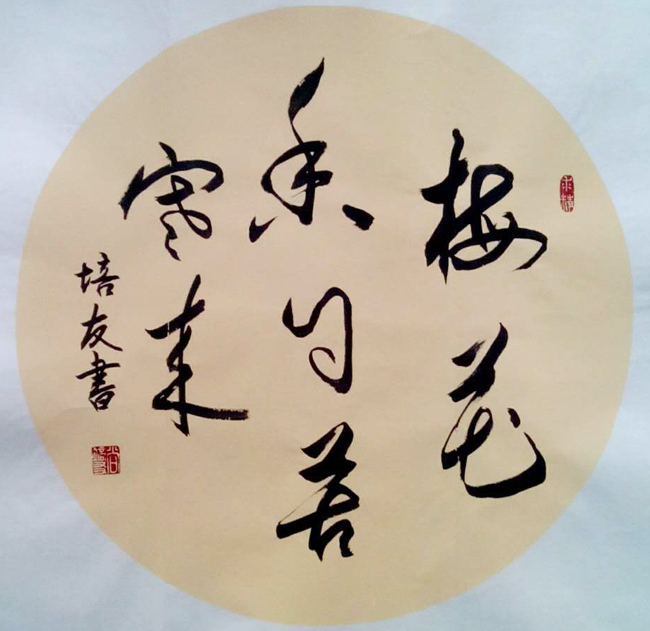 梅花
香自苦
寒来
培友書